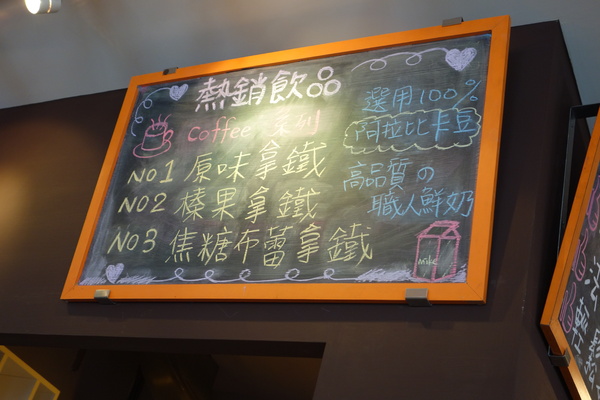 熱銷飲品
coffee 系列
NO1 原味拿鐵
NO2 榛果拿鐵
NO3 焦糖布蕾拿鐵
選用100%
阿拉比卡豆
高品質の
職人鮮奶
milk